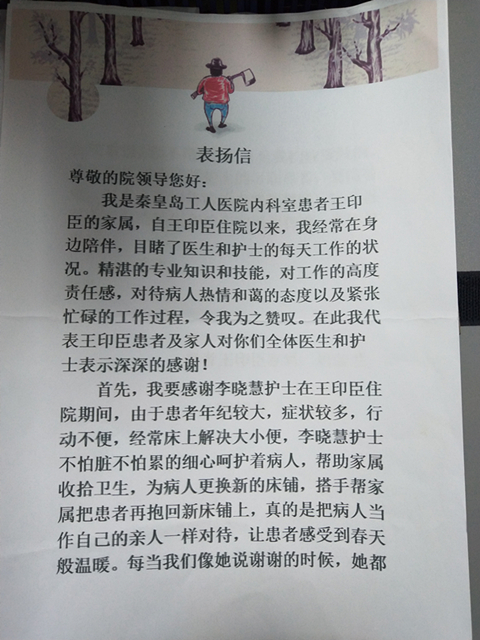 表扬信
尊敬的院领导您好：
我是秦皇岛工人医院内科室患者王印
臣的家属，自王印臣住院以来，我经常在身
边陪伴，目睹了医生和护士的每天工作的状
况。精湛的专业知识和技能，对工作的高度
责任感，对待病人热情和蔼的态度以及紧张
忙碌的工作过程，令我为之赞叹。在此我代
表王印臣患者及家人对你们全体医生和护
士表示深深的感谢！
首先，我要感谢李晓慧护士在王印臣住
院期间，由于患者年纪较大，症状较多，行
动不便，经常床上解决大小便，李晓慧护士
不怕脏不怕累的细心呵护着病人，帮助家属
收拾卫生，为病人更换新的床铺，搭手帮家
属把患者再抱回新床铺上，真的是把病人当
作自己的亲人一样对待，让患者感受到春天
般温暖。每当我们像她说谢谢的时候，她都